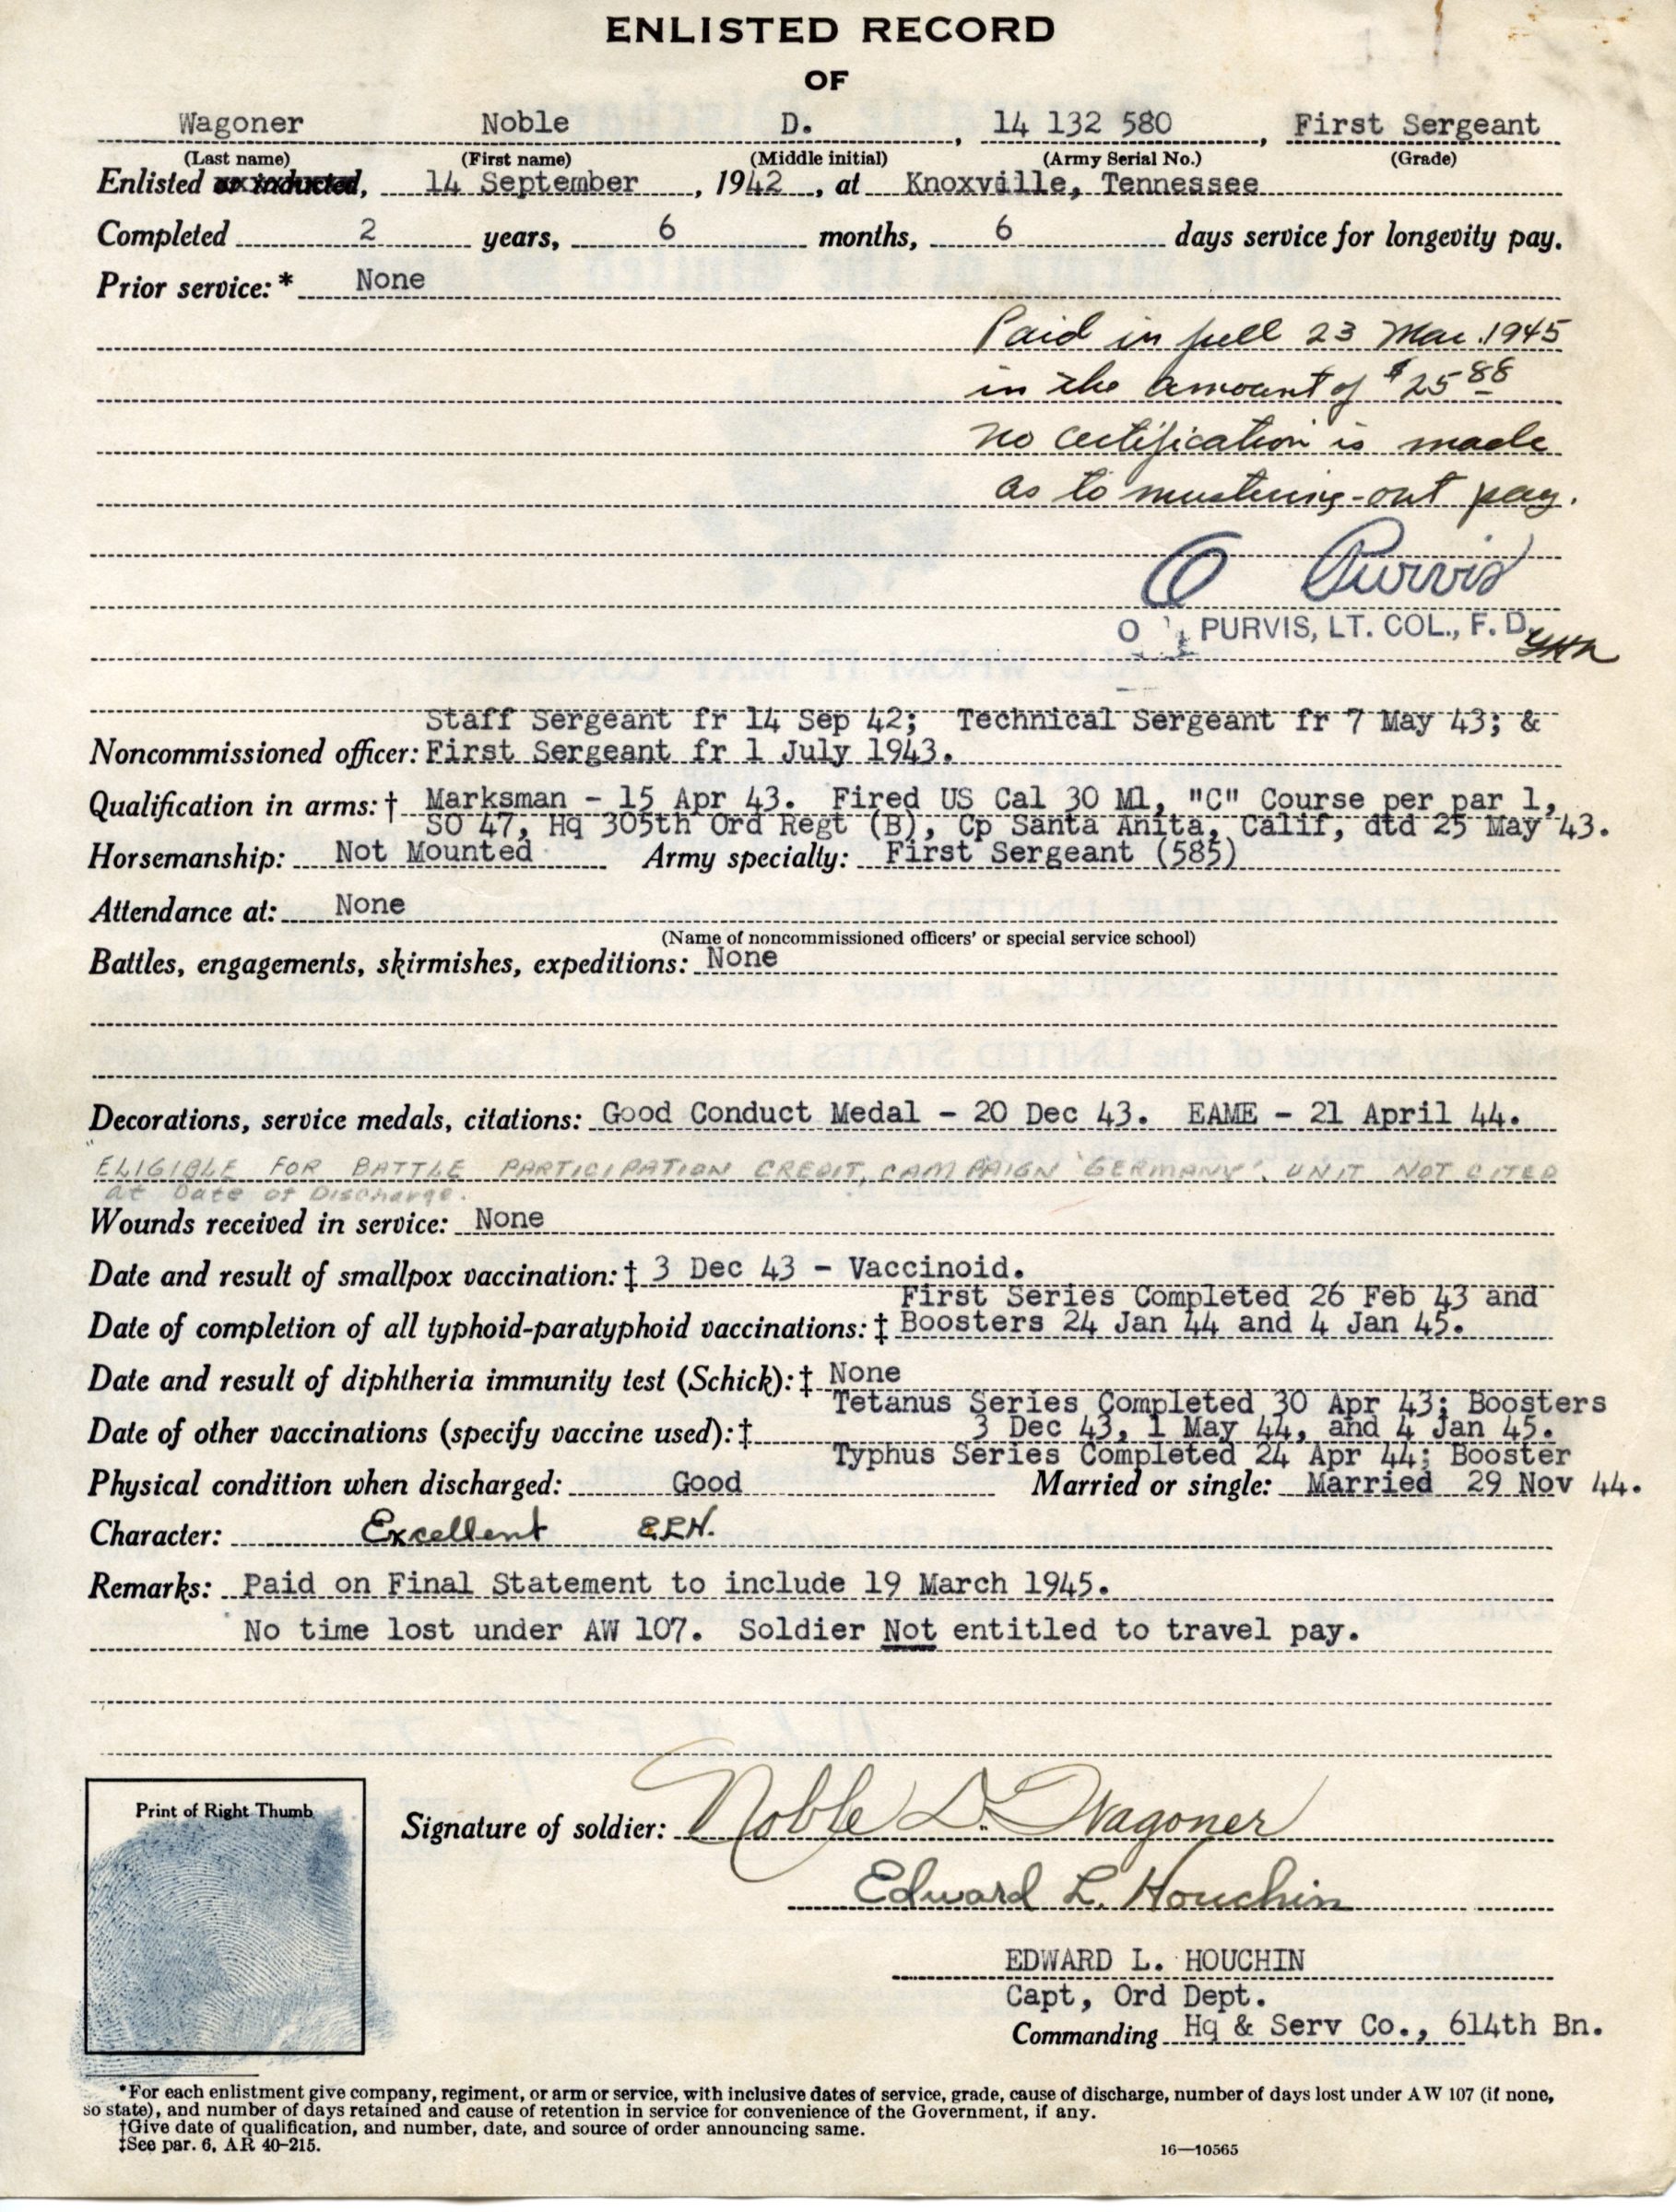 ENLISTED RECORD
OF
Wagoner Noble D. , 14 132 580 , First Sergeant
(Last name) (First name) (Middle initial) (Army Serial No.) (Grade)
Enlisted or inducted, 14 September , 1942 , at Knoxville, Tennessee
Completed 2 years, 6 months, 6 days service for longevity pay.
Prior service:* None
Paid in full 23 Mar. 1945
in the amount of $25 88
no certification is made
as to mustering-out pay.
O Purvis
O PURVIS, LT. COL., F. D.
Staff Sergeant fr 14 Sep 42; Technical Sergeant fr 7 May 43; &
Noncommissioned officer: First Sergeant fr 1 July 1943.
Qualification in arms:† Marksman - 15 Apr 43. Fired US Cal 30 M1, "C" Course per par 1,
SO 47, Hq 305th Ord Regt (B), Cp Santa Anita, Calif, dtd 25 May 43.
Horsemanship: Not Mounted Army specialty: First Sergeant (585)
Attendance at: None
(Name of noncommissioned officers' or special service school)
Battles, engagements, skirmishes, expeditions: None
Decorations, service medals, citations: Good Conduct Medal - 20 Dec 43. EAME - 21 April 44.
ELIGIBLE FOR BATTLE PARTICIPATION CREDIT, CAMPAIGN 'GERMANY'. UNIT NOT CITED
at Date of Discharge.
Wounds received in service: None
Date and result of smallpox vaccination:‡ 3 Dec 43 - Vaccinoid.
First Series Completed 26 Feb 43 and
Date of completion of all typhoid-paratyphoid vaccinations:‡ Boosters 24 Jan 44 and 4 Jan 45.
Date and result of diphtheria immunity test (Schick):‡ None
Tetanus Series Completed 30 Apr 43; Boosters
Date of other vaccinations (specify vaccine used):‡ 3 Dec 43, 1 May 44, and 4 Jan 45.
Typhus Series Completed 24 Apr 44; Booster
Physical condition when discharged: Good Married or single: Married 29 Nov 44.
Character: Excellent E.L.H.
Remarks: Paid on Final Statement to include 19 March 1945.
No time lost under AW 107. Soldier Not entitled to travel pay.
Print of Right Thumb
Signature of soldier: Noble D. Wagoner
Edward L. Houchin
EDWARD L. HOUCHIN
Capt, Ord Dept.
Commanding Hq & Serv Co., 614th Bn.
*For each enlistment give company, regiment, or arm or service, with inclusive dates of service, grade, cause of discharge, number of days lost under AW 107 (if none,
so state), and number of days retained and cause of retention in service for convenience of the Government, if any.
†Give date of qualification, and number, date, and source of order announcing same.
‡See par. 6, AR 40-215.
16—10565